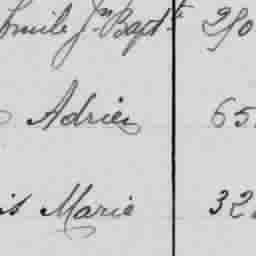 Emile Jn Bapte 290
Adrien 65
is Marie 32